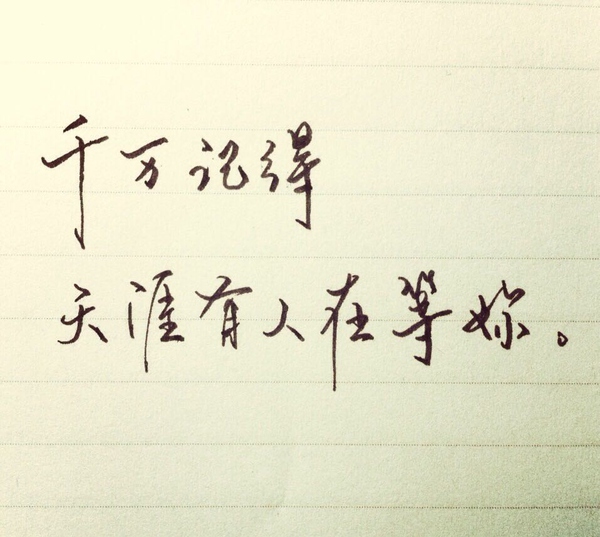 千万记得
天涯有人在等妳。